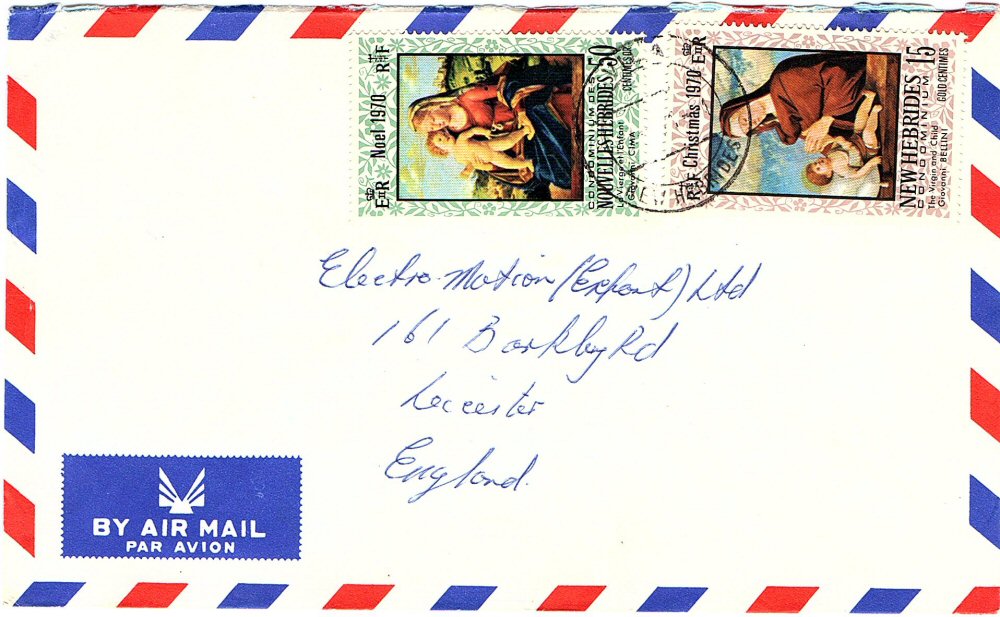 Noel 1970
E II R
R F
CONDOMINIUM DES
NOUVELLES HEBRIDES
50
CENTIMES OR
La Vierge et l'Enfant
Giovanni CIMA
Christmas 1970
R F
E II R
NEW HEBRIDES
CONDOMINIUM
15
GOLD CENTIMES
The Virgin and Child
Giovanni BELLINI
Electro-Motion (Export) Ltd
161 Barkby Rd
Leicester
England.
BY AIR MAIL
PAR AVION